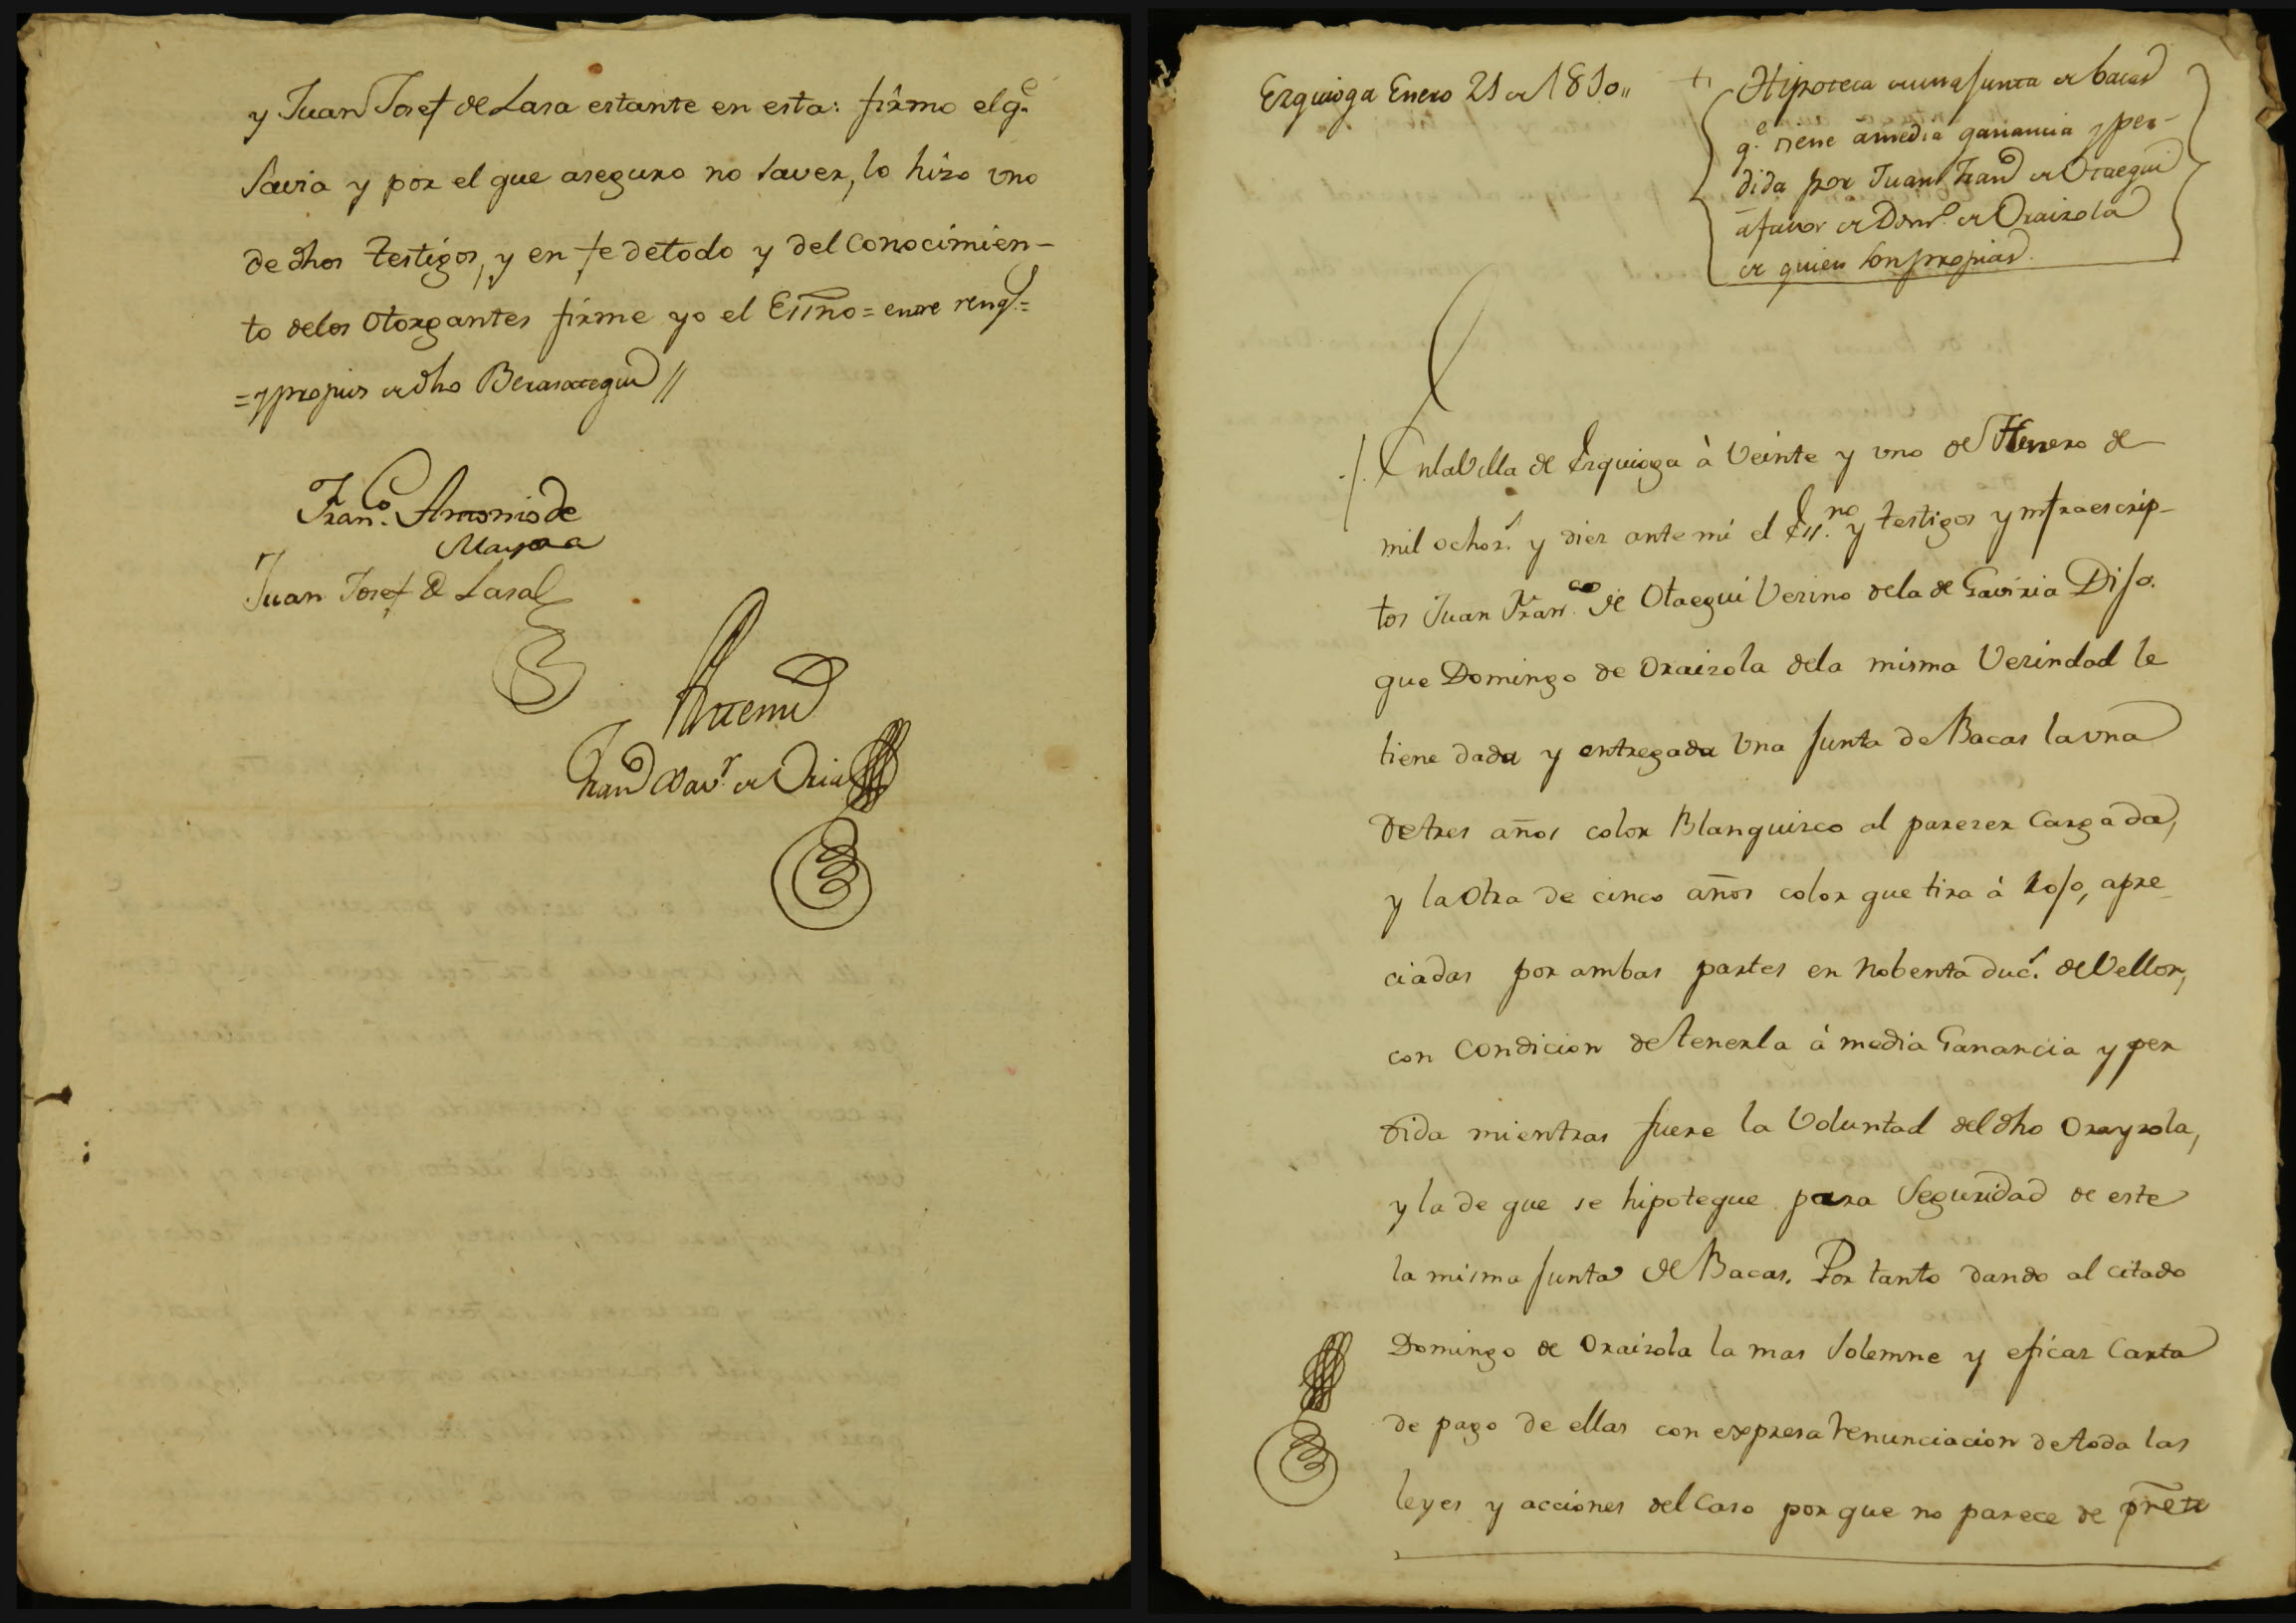 y Juan Josef de Lasa estante en esta: firmo el q.e
savia y por el que aseguro no saver, lo hizo vno
de dhos testigos, y en fe detodo y del conocimien-
to delos otorgantes firme yo el Essno = entre reng.s =
= y propios de dho Berasategui //
Fran.co Antonio de
Mayora
Juan Josef de Lasa
Antemi
Fran.co Xav.r de Oria
Ezquioga Enero 21 de 1810,,
+ Hipoteca de una junta de bacas
q.e tiene a media ganancia y per-
dida por Juan Fran.co de Otaegui
a favor de Dom.o de Oraizola
de quien son propias.
./. En la Villa de Ezquioga à Veinte y vno de Henero de
mil ochoz.s y diez ante mi el Ess.no y testigos ynfraescrip-
tos Juan Fran.co de Otaegui Vezino dela de Gaviria Dijo.
que Domingo de Oraizola dela misma Vezindad le
tiene dada y entregada Vna junta de Bacas la vna
detres años color Blanquizco al parezer cargada,
y la otra de cinco años color que tira á Rojo, apre-
ciadas por ambas partes en Nobenta duc.s de Vellon,
con condicion de tenerla á media Ganancia y per
dida mientras fuere la Voluntad del dho Orayzola,
y la de que se hipoteque para Seguridad de este
la misma junta de Bacas. Por tanto dando al citado
Domingo de Oraizola la mas solemne y eficaz carta
de pago de ellas con expresa renunciacion de toda las
leyes y acciones del caso por que no parece de prete